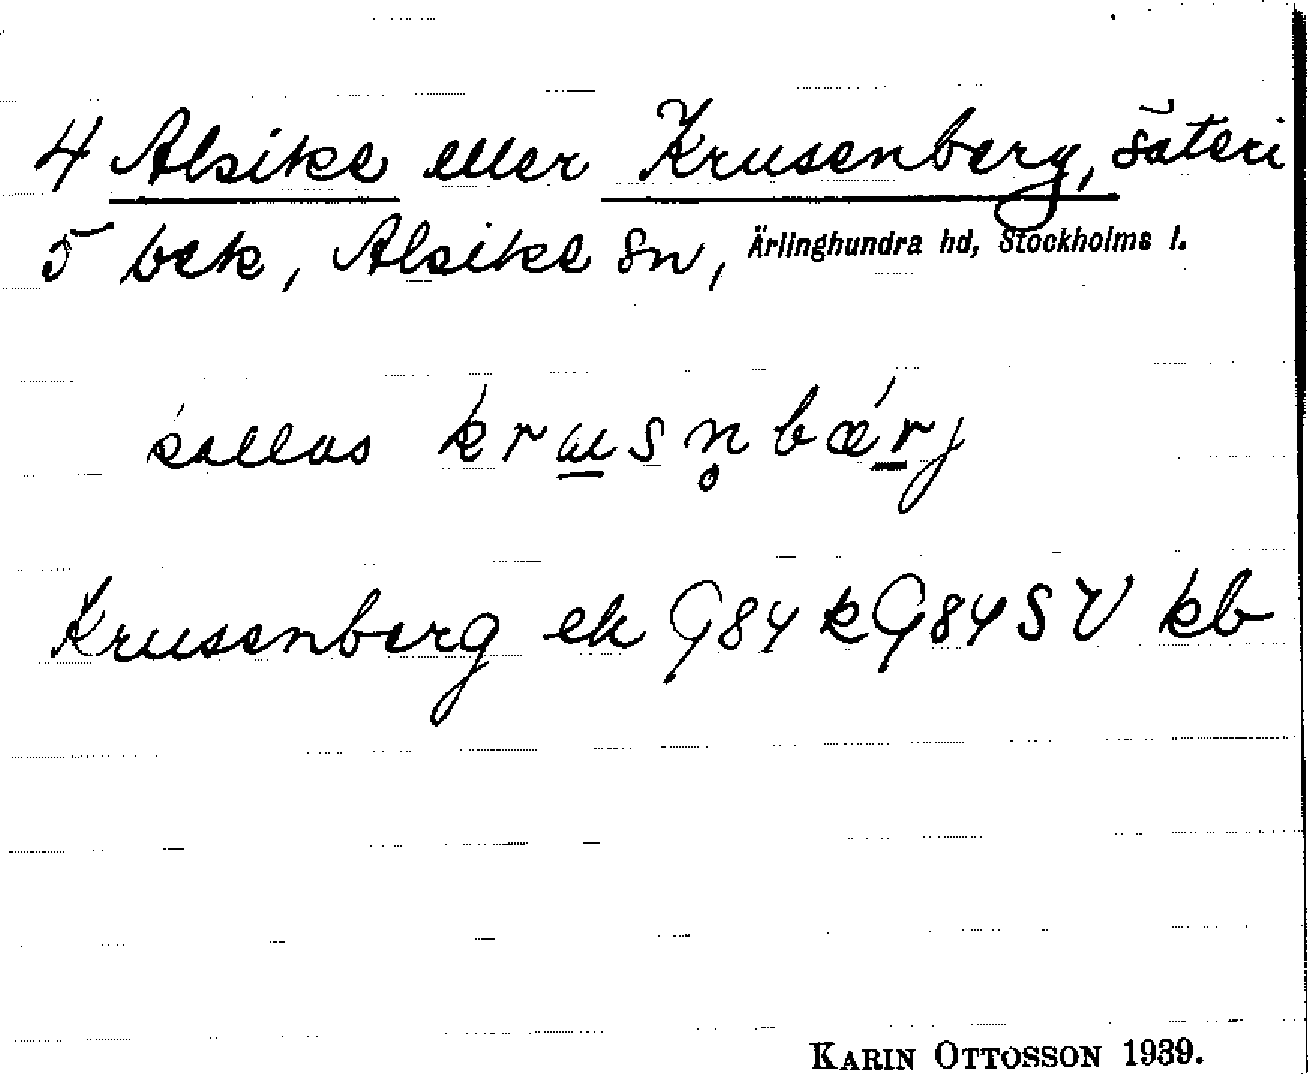 4 Alsike eller Krusenberg, säteri
5 bek, Alsike sn, Ärlinghundra hd, Stockholms l.
kallas krɯsn̥bǽrj
Krusenberg ek G84 k G84SV kb
KARIN OTTOSSON 1939.